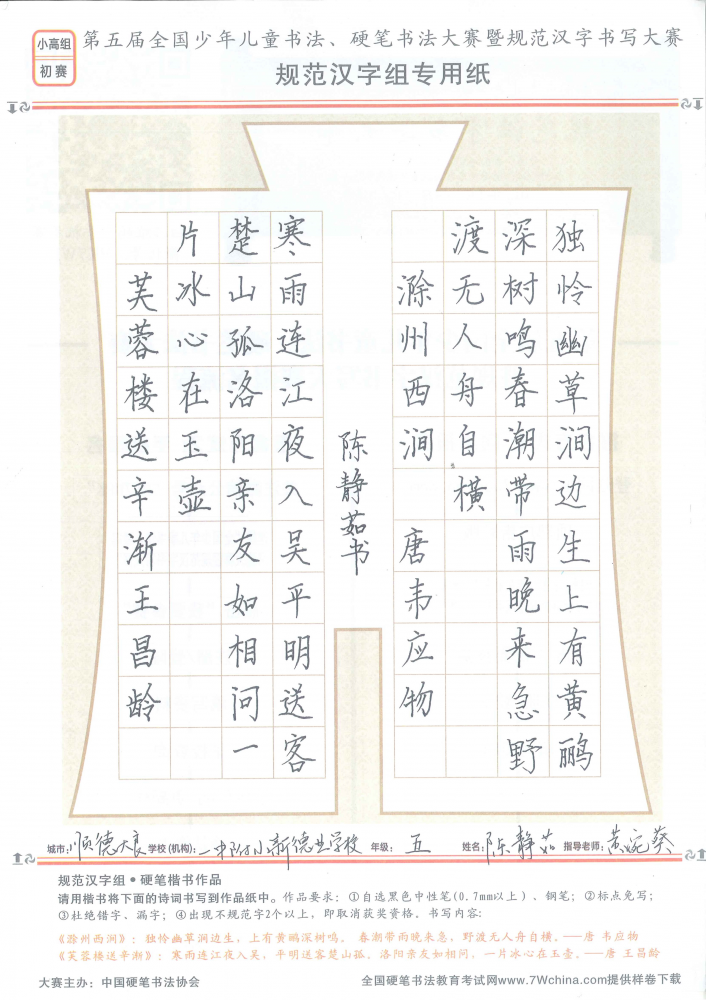 小高组
初赛
第五届全国少年儿童书法、硬笔书法大赛暨规范汉字书写大赛
规范汉字组专用纸
独怜幽草涧边生上有黄鹂
深树鸣春潮带雨晚来急野
渡无人舟自横
滁州西涧 唐韦应物
陈静茹书
寒雨连江夜入吴平明送客
楚山孤洛阳亲友如相问一
片冰心在玉壶
芙蓉楼送辛渐王昌龄
城市: 顺德大良 学校(机构): 一中附小新德业学校 年级: 五 姓名: 陈静茹 指导老师: 黄婉葵
规范汉字组•硬笔楷书作品
请用楷书将下面的诗词书写到作品纸中。作品要求：①自选黑色中性笔(0.7mm以上)、钢笔；②标点免写；
③杜绝错字、漏字；④出现不规范字2个以上，即取消获奖资格。书写内容:
《滁州西涧》：独怜幽草涧边生，上有黄鹂深树鸣。 春潮带雨晚来急，野渡无人舟自横。——唐 韦应物
《芙蓉楼送辛渐》：寒雨连江夜入吴，平明送客楚山孤。洛阳亲友如相问，一片冰心在玉壶。——唐 王昌龄
大赛主办：中国硬笔书法协会 全国硬笔书法教育考试网www.7Wchina.com提供样卷下载